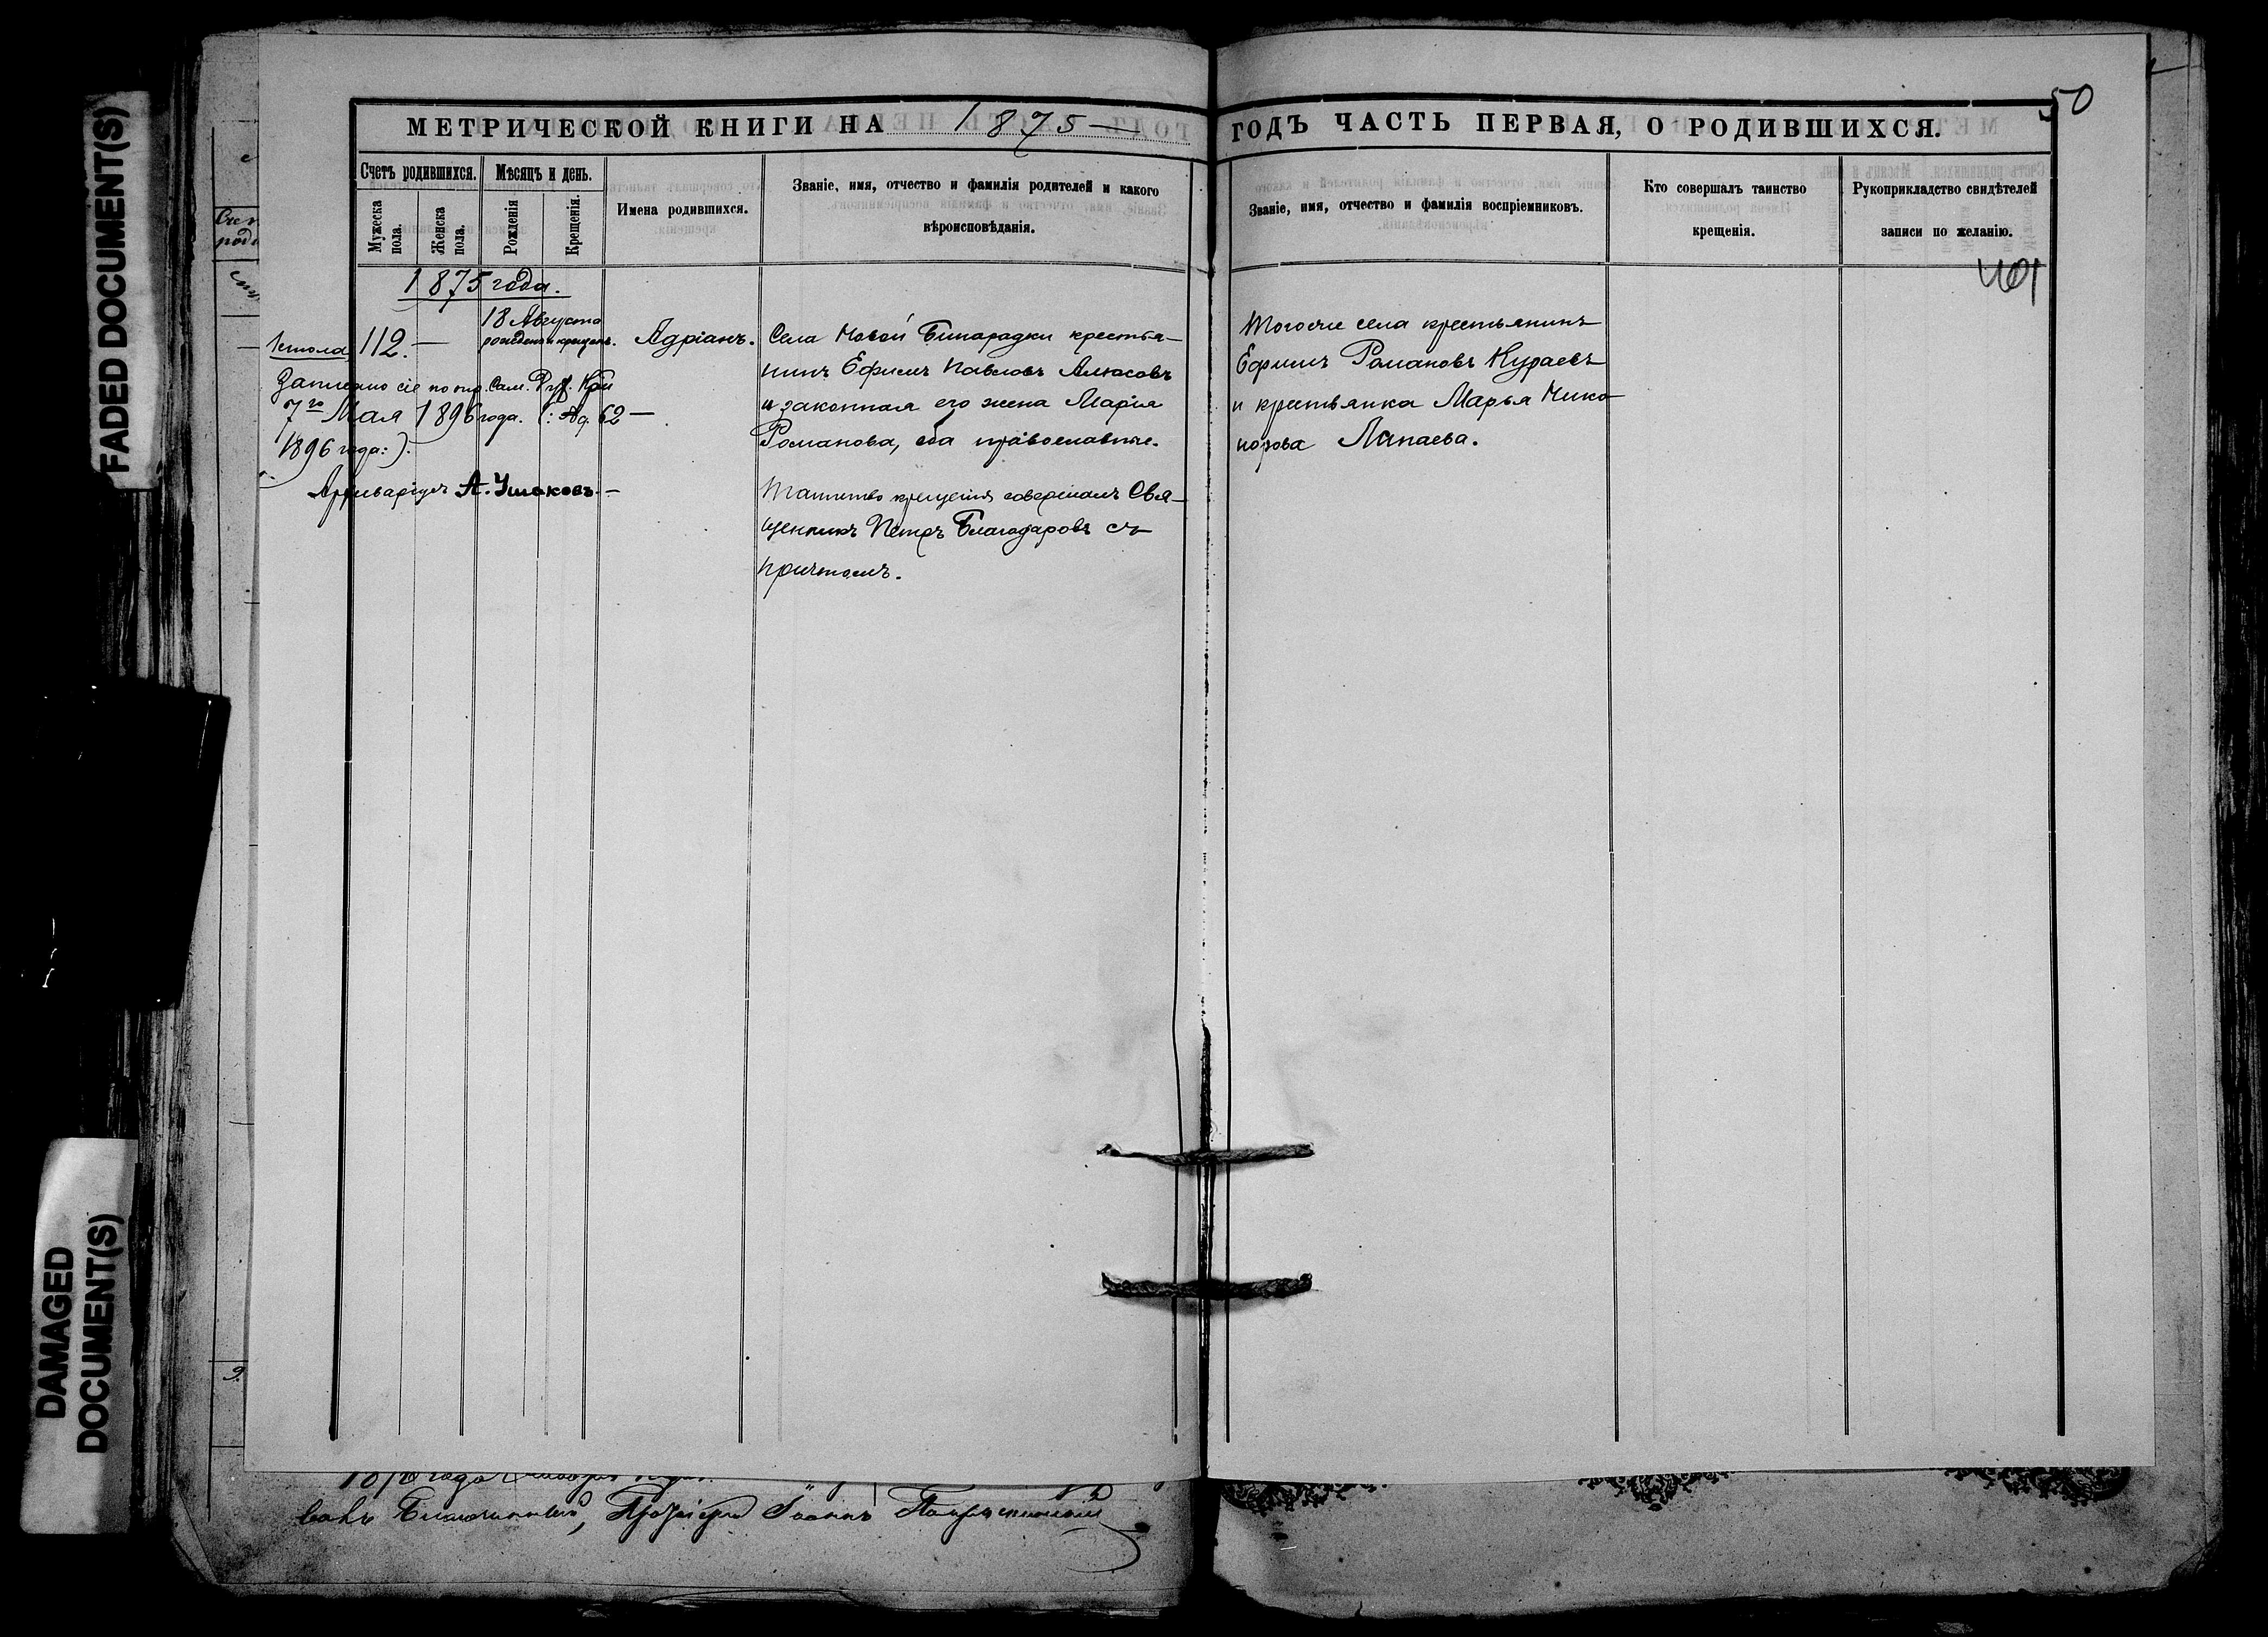 FADED DOCUMENT(S)
DAMAGED
DOCUMENT(S)
50
МЕТРИЧЕСКОЙ КНИГИ НА 1875 —
ГОДЪ ЧАСТЬ ПЕРВАЯ, О РОДИВШИХСЯ.
Счетъ родившихся.
Мѣсяцъ и день.
Мужеска
пола.
Женска
пола.
Рожденія
Крещенія.
Имена родившихся.
Званіе, имя, отчество и фамилія родителей и какого
вѣроисповѣданія.
Званіе, имя, отчество и фамилія воспріемниковъ.
Кто совершалъ таинство
крещенія.
Рукоприкладство свидѣтелей
записи по желанію.
401
1875 года.
1 стола
112. —
18 Августа
рожденъ и крещенъ.
Адріанъ.
Села Новой Бинарадки крестья-
нинъ Ефимъ Павловъ Алюсовъ
и законная его жена Марія
Романова, оба православные.
Таинство крещенія совершалъ Свя-
щенникъ Петръ Благодаровъ съ
причтомъ.
Тогоже села крестьянинъ
Ефимъ Романовъ Кураевъ
и крестьянка Марья Нико-
норова Лапаева.
Записано сіе по опр. Сам. Дух. Кон
7го Мая 1896 года. (: Ад. 62 —
1896 года:).
Архиваріусъ А. Ушаковъ. —
года
Благочинный, Протоіерей Іоаннъ
9.